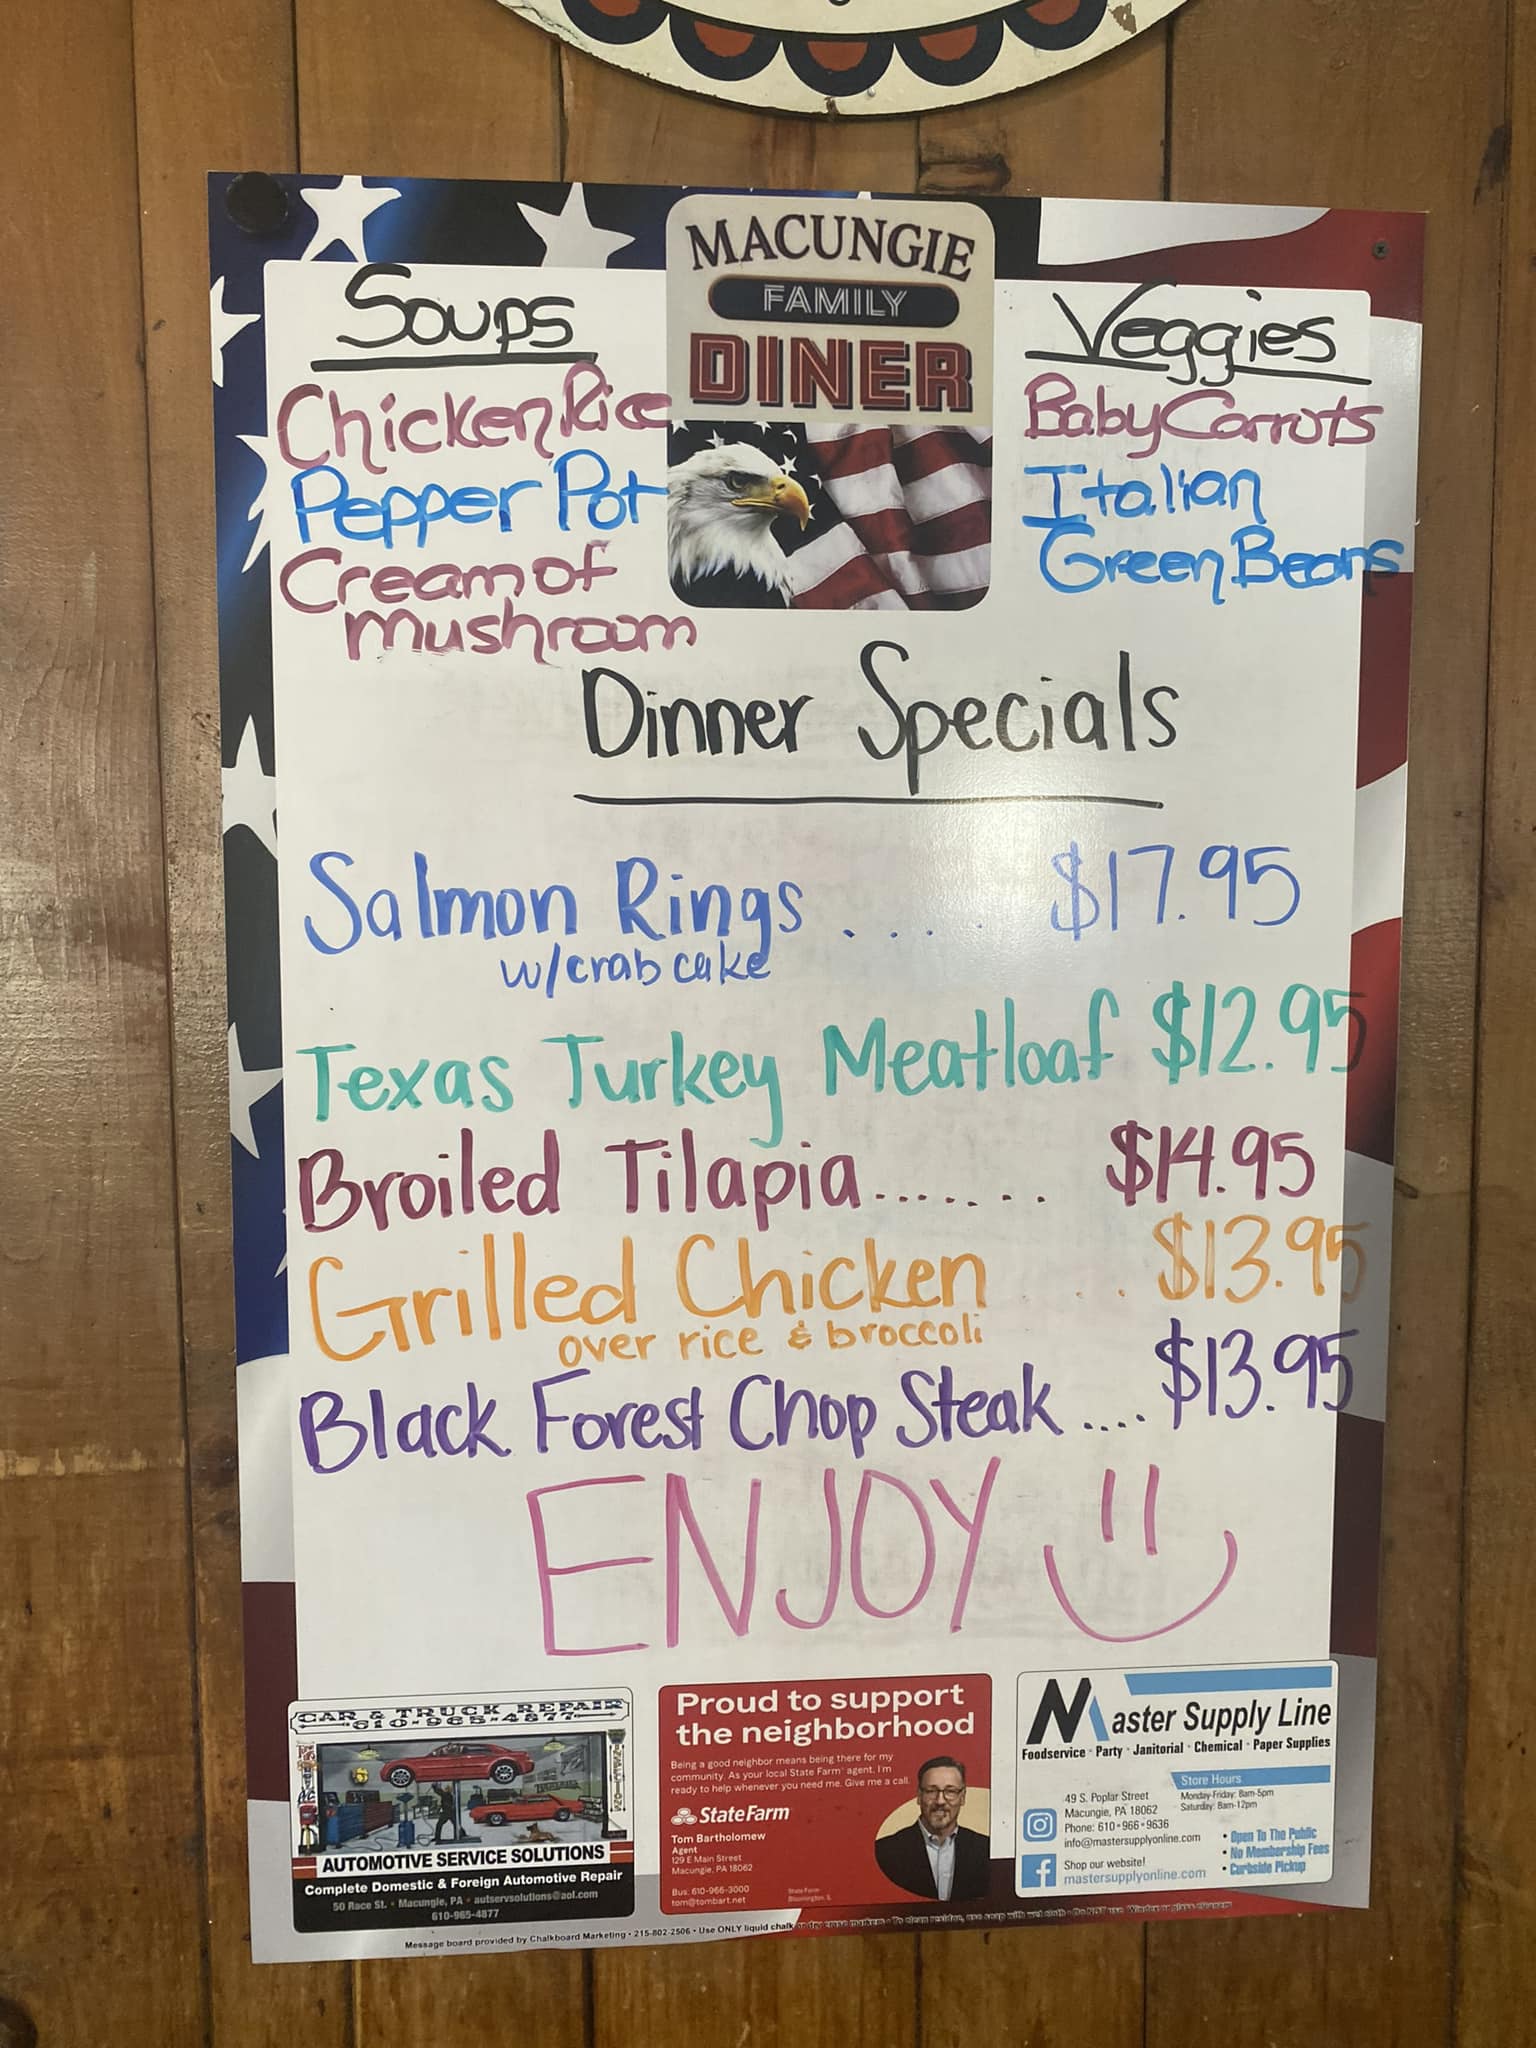 MACUNGIE
FAMILY
DINER
Soups
Chicken Rice
Pepper Pot
Cream of
Mushroom
Veggies
Baby Carrots
Italian
Green Beans
Dinner Specials
Salmon Rings ..... $17.95
w/crab cake
Texas Turkey Meatloaf $12.95
Broiled Tilapia....... $14.95
Grilled Chicken .. $13.95
over rice & broccoli
Black Forest Chop Steak .... $13.95
ENJOY
CAR & TRUCK REPAIR
610-965-4877
AUTOMOTIVE SERVICE SOLUTIONS
Complete Domestic & Foreign Automotive Repair
50 Race St. • Macungie, PA • autservsolutions@aol.com
610-965-4877
Proud to support
the neighborhood
Being a good neighbor means being there for my
community. As your local State Farm® agent, I'm
ready to help whenever you need me. Give me a call.
State Farm
Tom Bartholomew
Agent
129 E Main Street
Macungie, PA 18062
Bus: 610-966-3000
tom@tombart.net
State Farm
Bloomington, IL
Master Supply Line
Foodservice · Party · Janitorial · Chemical · Paper Supplies
Store Hours
Monday-Friday: 8am-5pm
Saturday: 8am-12pm
49 S. Poplar Street
Macungie, PA 18062
Phone: 610•966•9636
info@mastersupplyonline.com
Shop our website!
mastersupplyonline.com
• Open To The Public
• No Membership Fees
• Curbside Pickup
Message board provided by Chalkboard Marketing • 215-802-2506 • Use ONLY liquid chalk or dry erase markers • To clean residue, use soap with wet cloth • Do NOT use Windex or glass cleaners